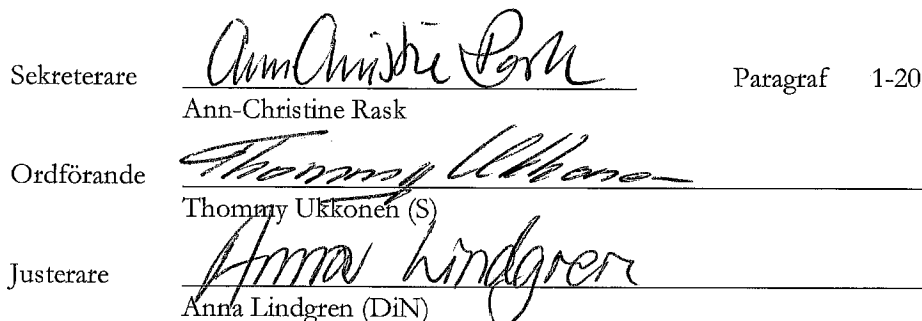 Sekreterare Ann Christine Rask Paragraf 1-20
Ann-Christine Rask
Ordförande Thommy Ukkonen
Thommy Ukkonen (S)
Justerare Anna Lindgren
Anna Lindgren (DiN)